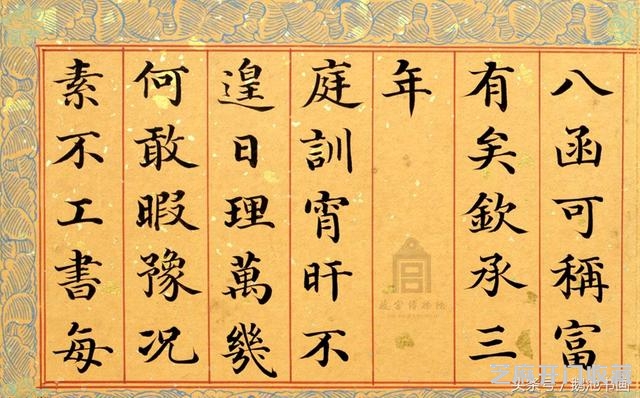 八函可稱富
有矣欽承三
年
庭訓宵旰不
遑日理萬幾
何敢暇豫况
素不工書每
故宫博物院
头条号/鹅池书画